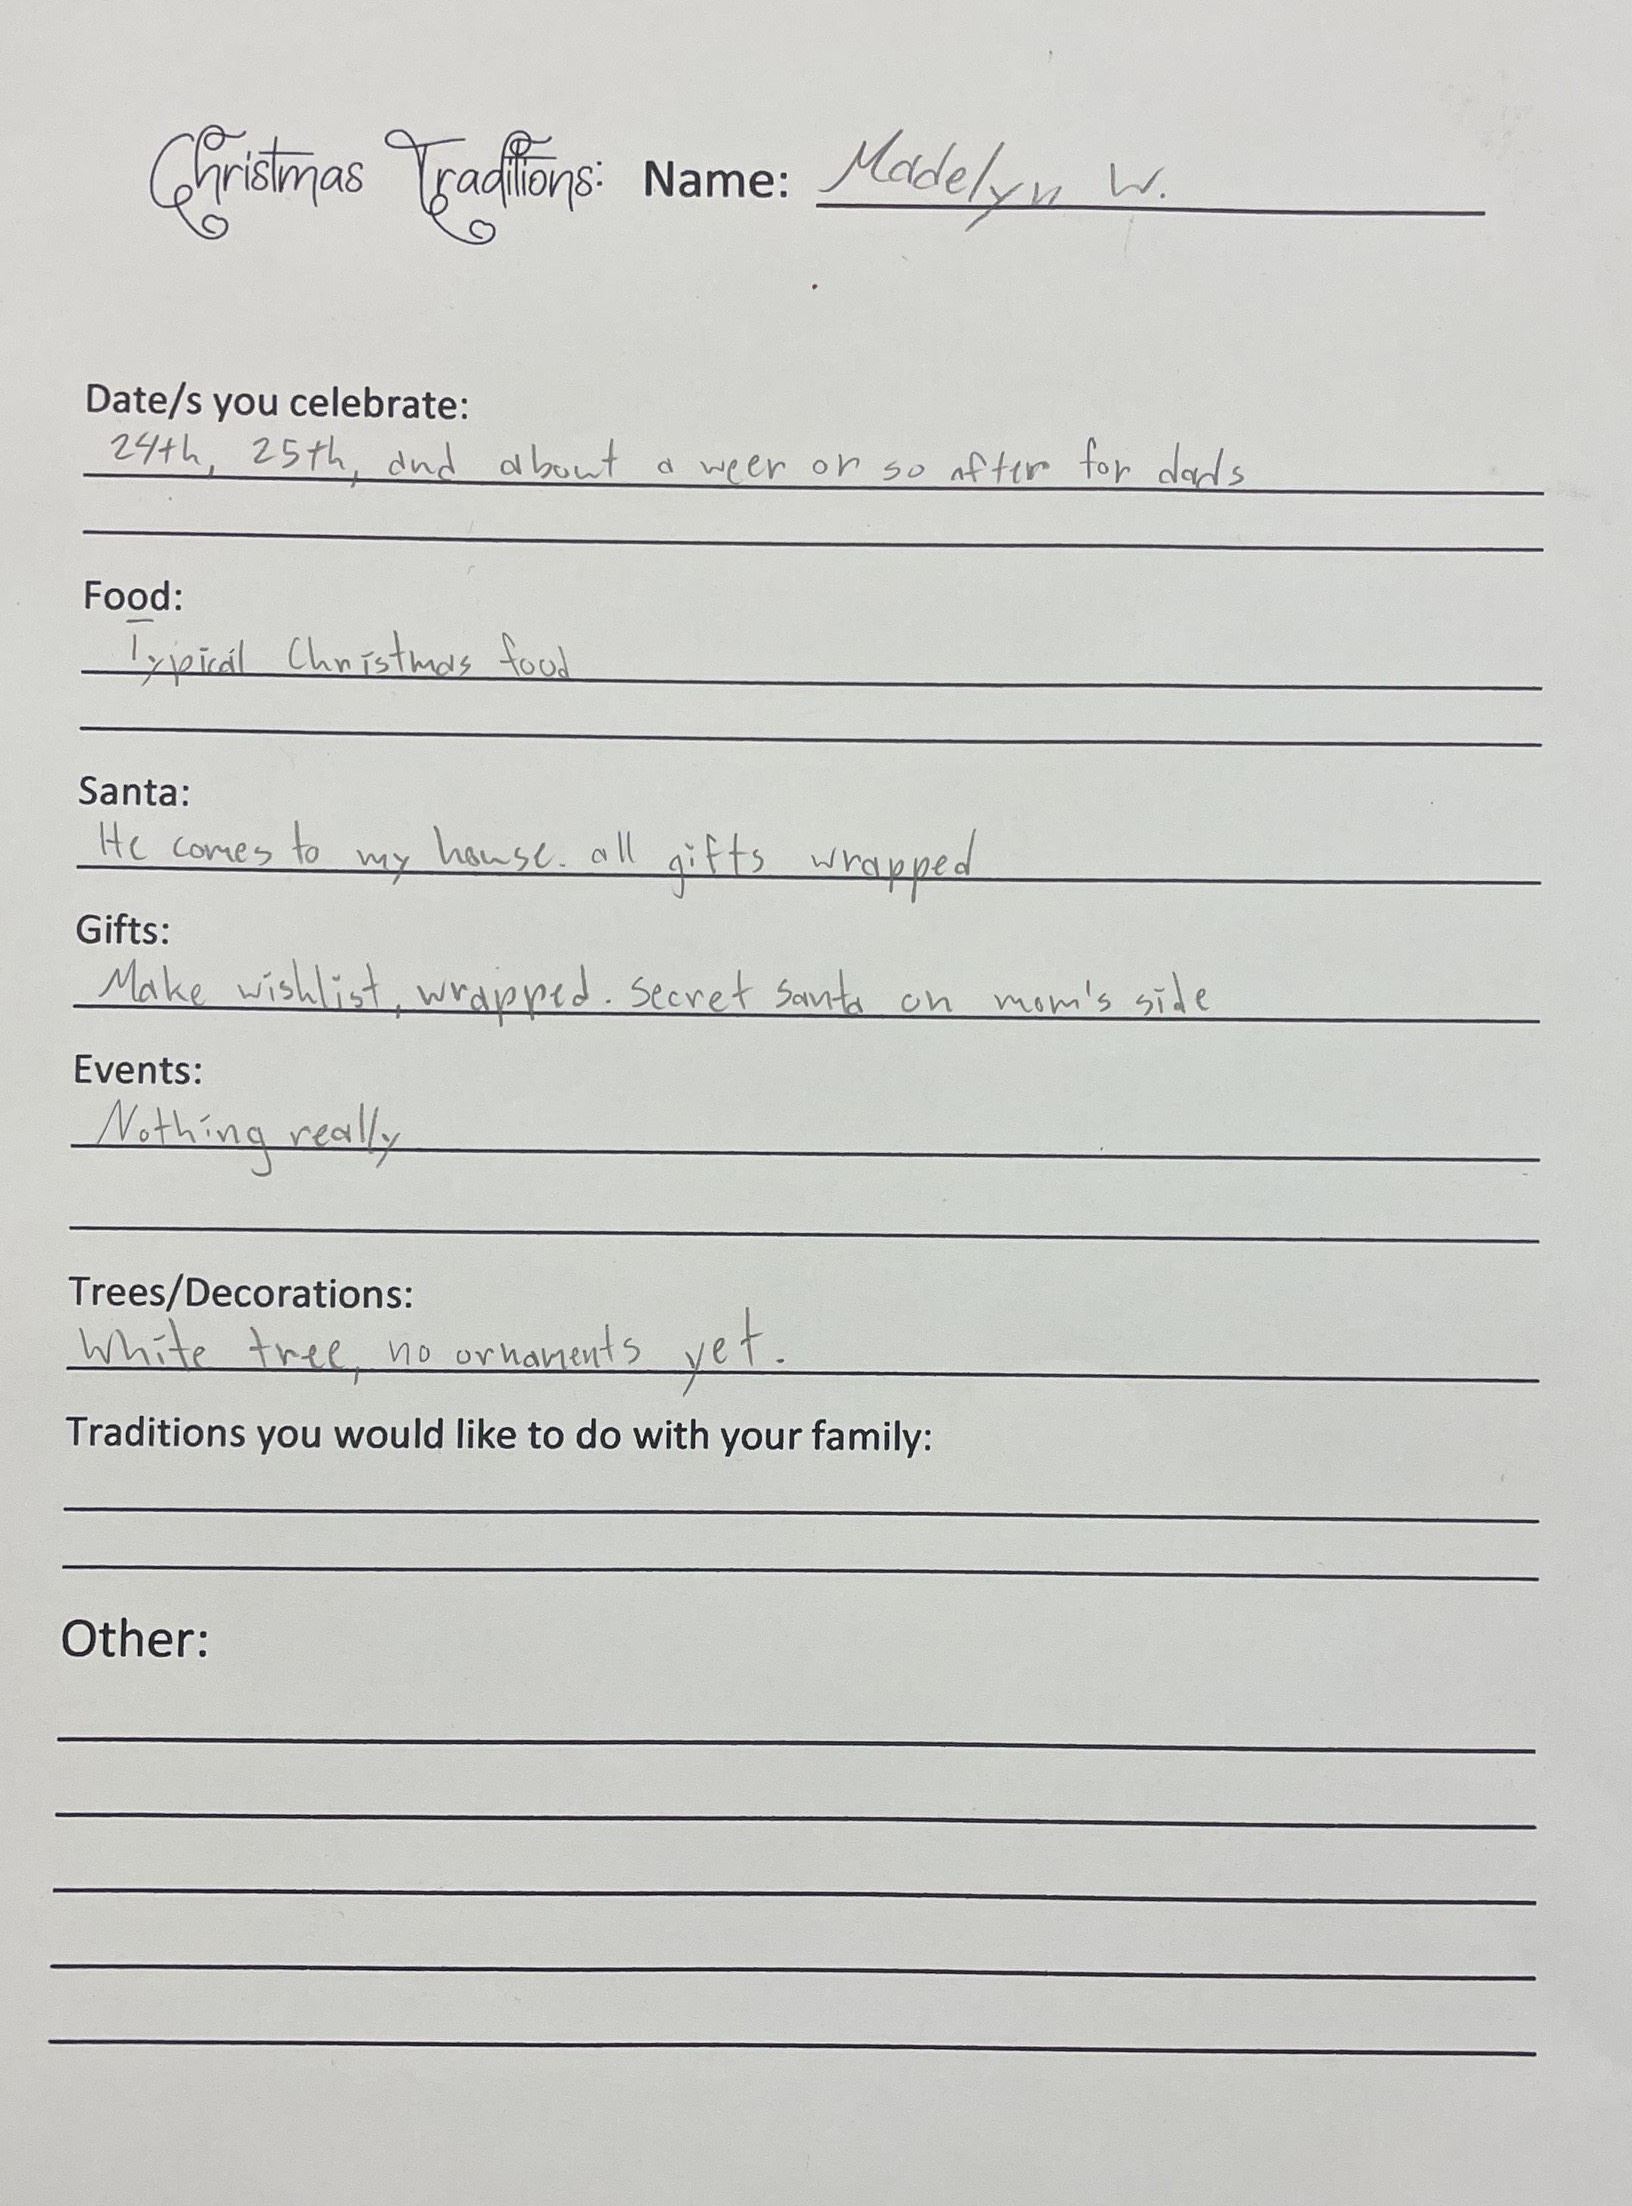 Christmas Traditions: Name: Madelyn W.
Date/s you celebrate:
24th, 25th, and about a week or so after for dads
Food:
Typical Christmas food
Santa:
He comes to my house. all gifts wrapped
Gifts:
Make wishlist, wrapped. Secret Santa on mom's side
Events:
Nothing really
Trees/Decorations:
White tree, no ornaments yet.
Traditions you would like to do with your family:
Other: